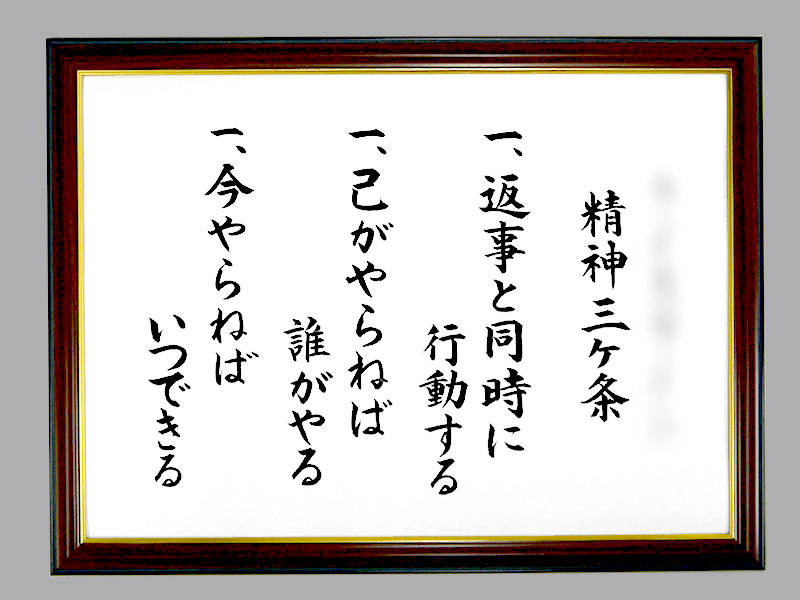 精神三ケ条
一、返事と同時に
行動する
一、己がやらねば
誰がやる
一、今やらねば
いつできる